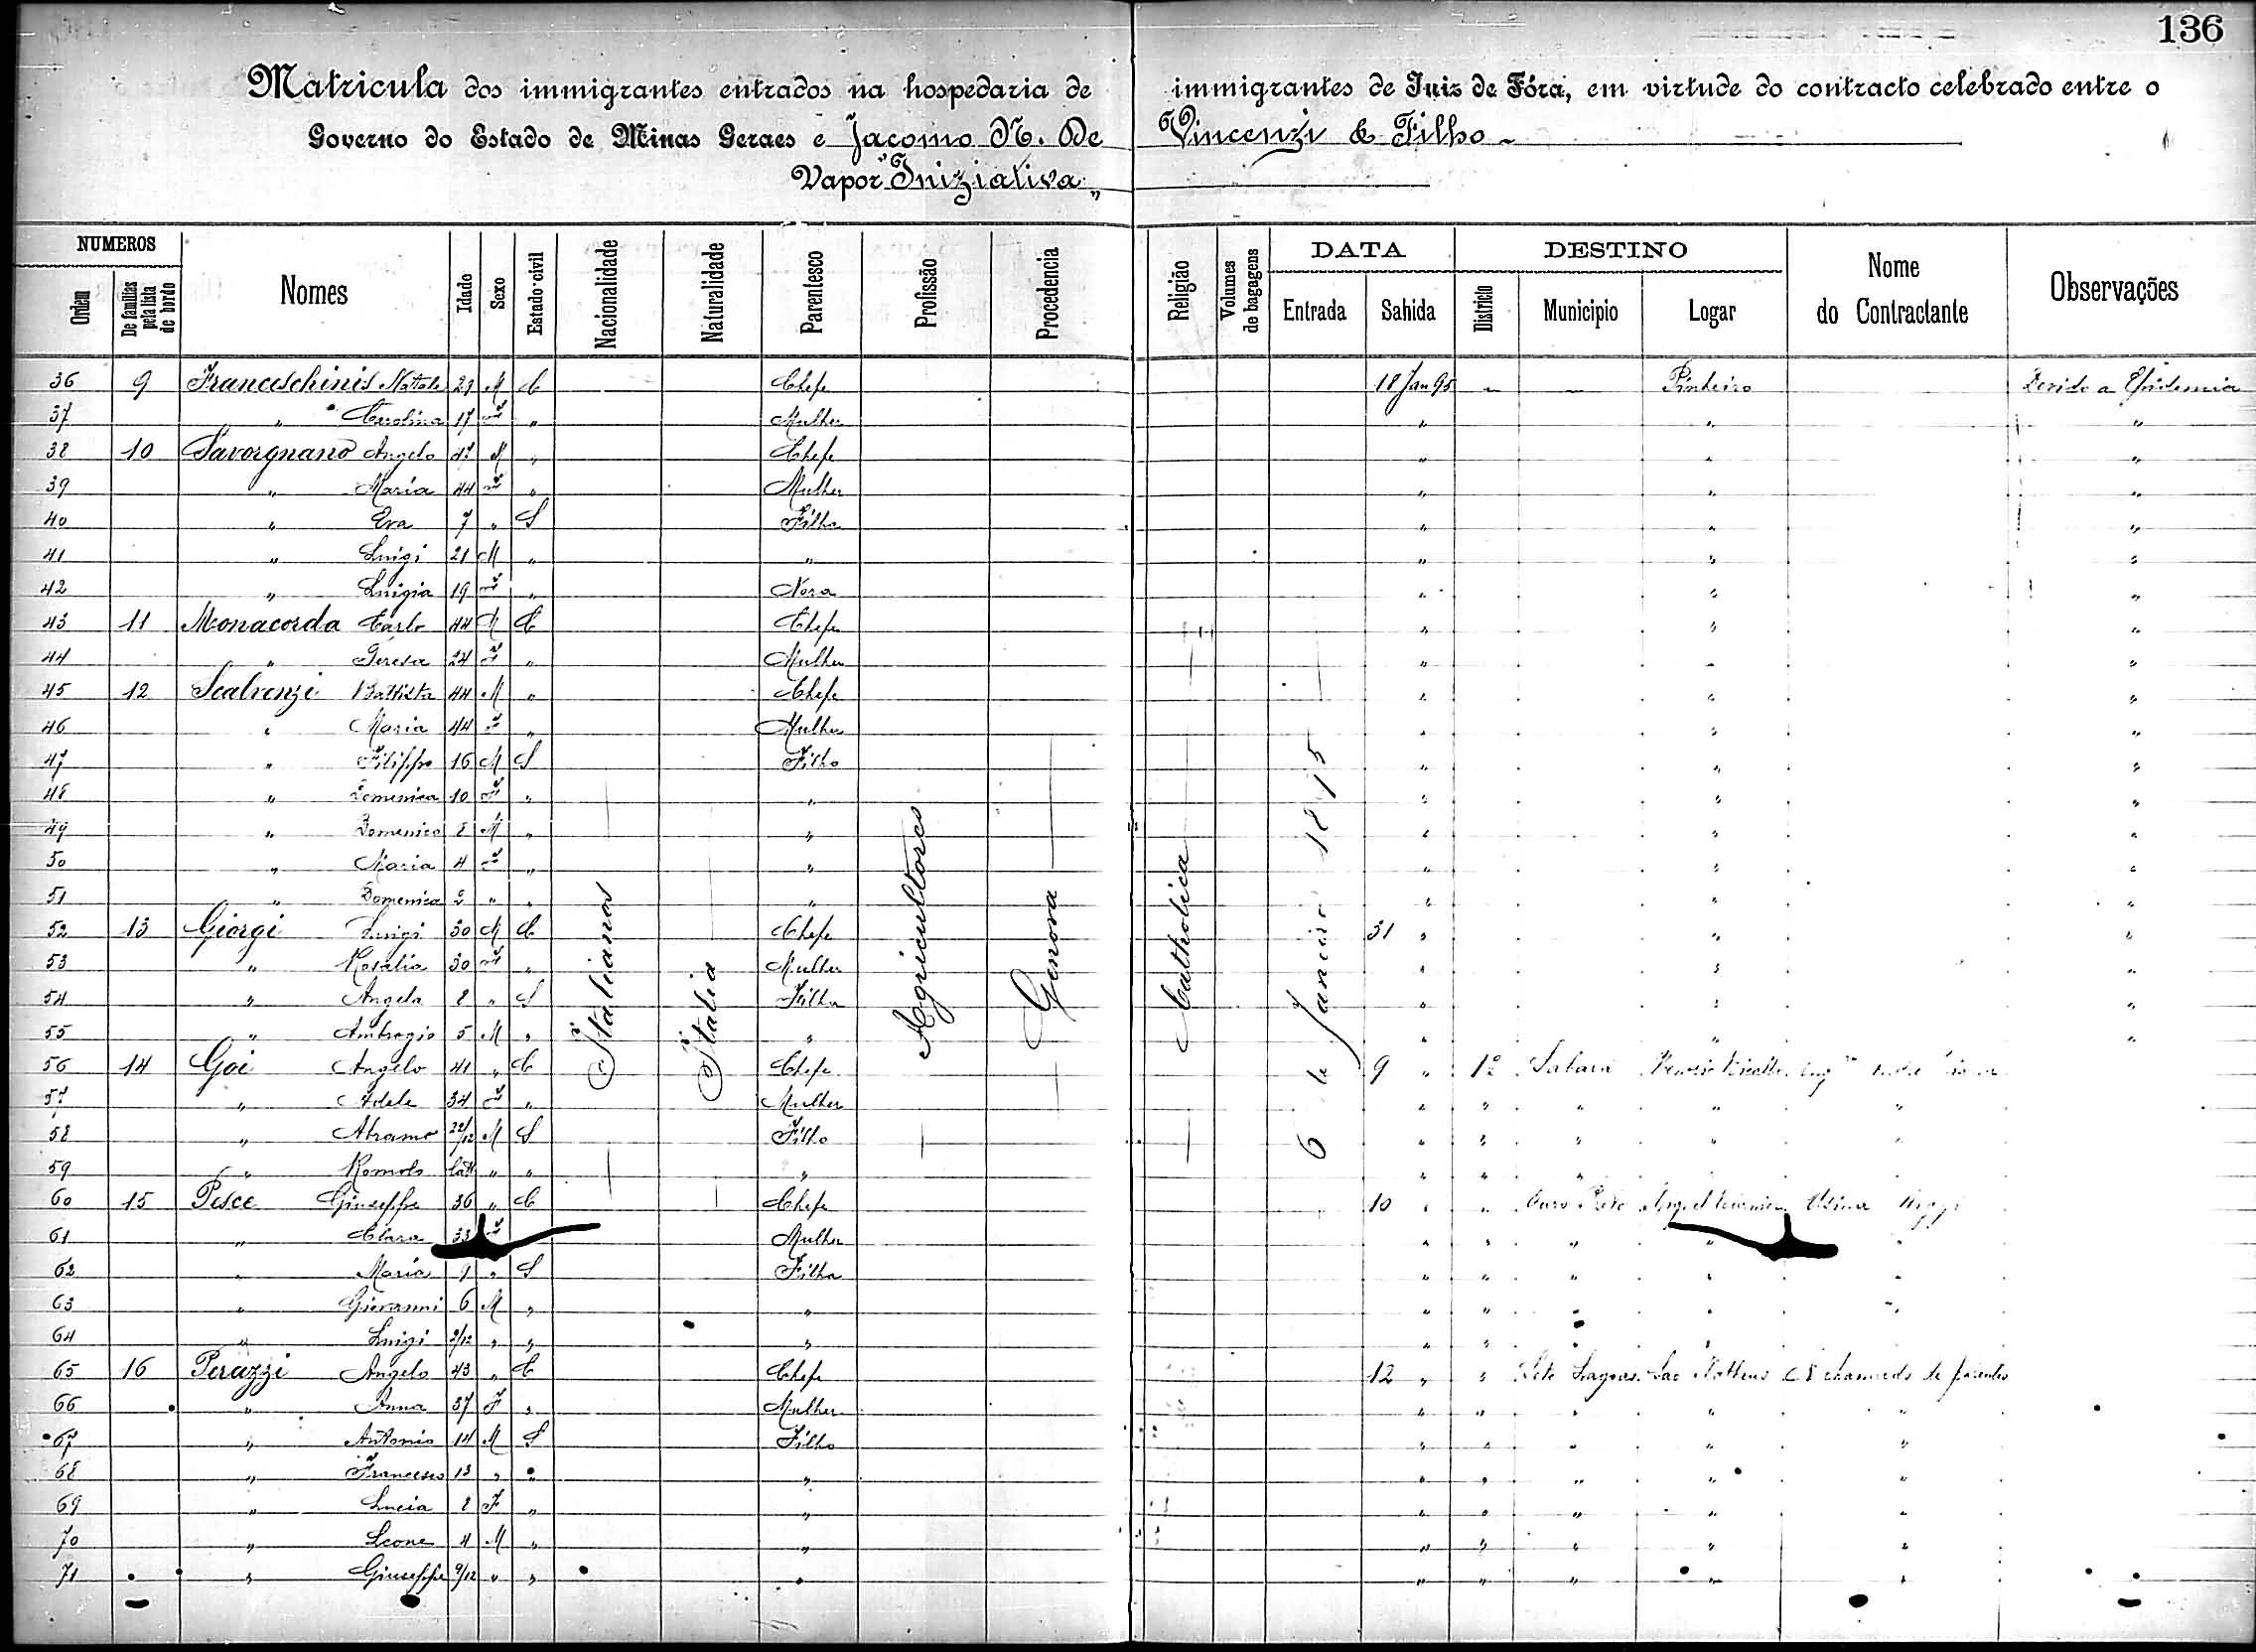 136
Matricula dos immigrantes entrados na hospedaria de immigrantes de Juiz de Fóra, em virtude do contracto celebrado entre o
Governo do Estado de Minas Geraes e Jacomo N. De Vincenzi & Filho
Vapor "Iniziativa"
NUMEROS DATA DESTINO
Ordem De familias pela lista de bordo Nomes Idade Sexo Estado civil Nacionalidade Naturalidade Parentesco Profissão Procedencia Religião Volumes de bagagens Entrada Sahida Districto Municipio Logar Nome do Contractante Observações
Italianos Italia Agricultores Genova Catholica 6 de Janeiro 1895
36 9 Franceschinis Natale 29 M C Chefe 18 Jan 95 " " Pinheiro Devido a Epidemia
37 " Carolina 17 F " Mulher " " "
38 10 Savorgnano Angelo 47 M " Chefe " " "
39 " Maria 44 F " Mulher " " "
40 " Eva 7 " S Filha " " "
41 " Luigi 21 M " " " " "
42 " Luigia 19 F " Nora " " "
43 11 Monacorda Carlo 44 M C Chefe " " "
44 " Teresa 24 F " Mulher " " "
45 12 Scalvenzi Battista 44 M " Chefe " " "
46 " Maria 44 F " Mulher " " "
47 " Filippo 16 M S Filho " " "
48 " Domenica 10 F " " " " "
49 " Domenico 8 M " " " " "
50 " Maria 4 F " " " " "
51 " Domenica 2 " " " " " "
52 13 Giorgi Luigi 30 M C Chefe 31 " " "
53 " Rosalia 30 F " Mulher " " "
54 " Angela 8 " S Filha " " "
55 " Ambrogio 5 M " " " " "
56 14 Goi Angelo 41 " C Chefe 9 " 1º Sabará
57 " Adele 34 F " Mulher " " " " "
58 " Abramo 22/12 M S Filho " " " " "
59 " Romolo " " " " " "
60 15 Pesce Giuseppe 36 " C Chefe 10 " " Ouro Preto
61 " Clara 33 F Mulher " " " " "
62 " Maria 9 " S Filha " " " " "
63 " Giovanni 6 M " " " " " "
64 " Luigi 2/12 " " " " " "
65 16 Perazzi Angelo 43 " C Chefe 12 " " Sete Lagoas Sao Matheus A chamado de parentes
66 " Anna 37 F " Mulher " " " " "
67 " Antonio 14 M S Filho " " " " "
68 " Francesco 13 " " " " " " " "
69 " Lucia 8 F " " " " " " "
70 " Leone 4 M " " " " " " "
71 " Giuseppe 9/12 " " " " " " " "